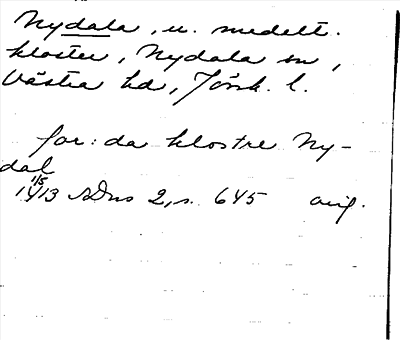 Nydala, u. medelt.
kloster, Nydala sn,
Västra hd, Jönk. l.
for: da klostre Ny-
dal
1/5
1413 SDns 2, s. 645 orig.